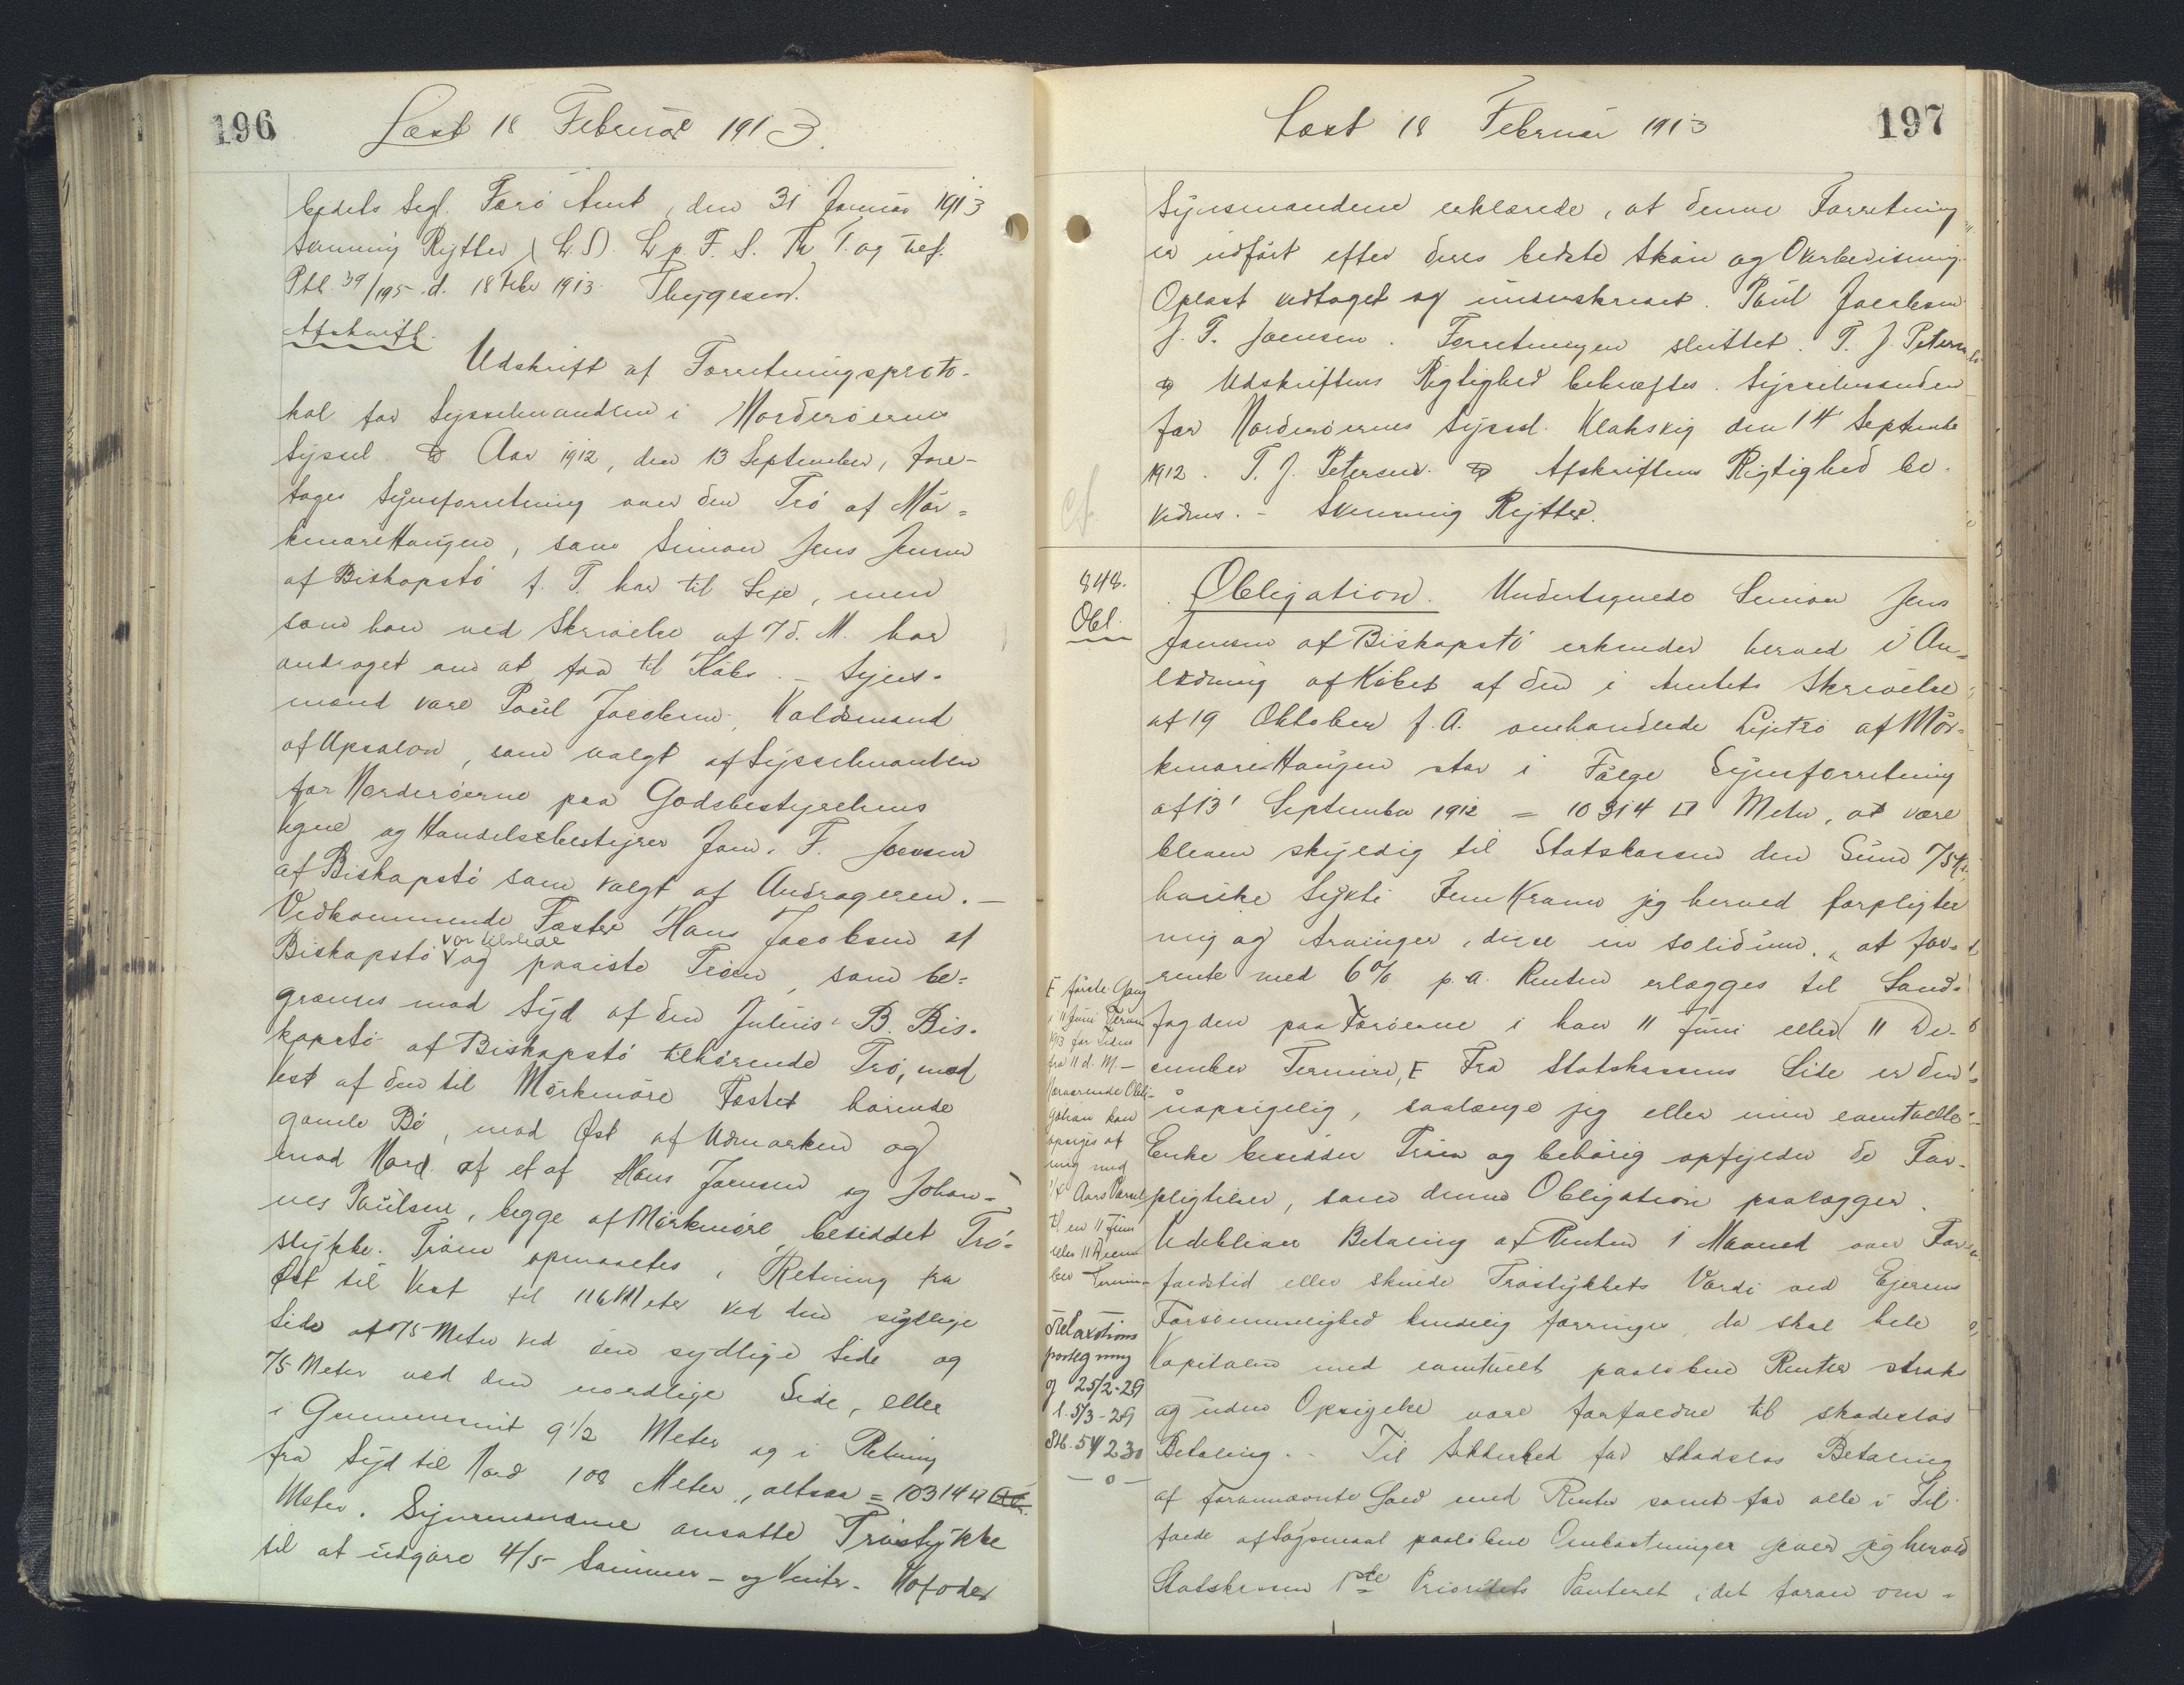 196
Læst 18 Februar 1913.
bedets Segl. Færö Amt, den 31 Januar 1913
Svenning Rytter (L.S). L p. F. S. Th T. og ref.
Ptl. 39/195 d. 18 Febr 1913. Thygesen.
Afskrift.
Udskrift af Forretningsproto-
kol for Sysselmanden i Norderöernes
Syssel. Aar 1912, den 13 September, fore-
toges Synsforretning over den Trö af Mör-
kmoreHaugen, som Simon Jens Joensen
af Biskopstö f. T. har til Leje, men
som han ved Skrivelse af 7 d. M. har
andraget om at faa til Köbs. - Syns-
mænd vare Poul Jacobsen, Kaldsmand
af Upsalon, som valgt af Sysselmanden
for Norderöerne paa Godsbestyrelsens
Vegne og Handelsbestyrer Joen. F. Joensen
af Biskopstö som valgt af Andrageren. -
Vedkommende Fæster Hans Jacobsen af
Biskopstö var tilstede og paaviste Tröen, som be-
grænses mod Syd af den Julius B. Bis-
kopstö af Biskopstö tilhörende Trö, mod
Vest af den til Mörkmöre Fæstet hörende
gamle Bö, mod Öst af Udmarken og
mod Nord af et af Hans Joensen og Johan-
nes Poulsen, begge af Mörkmöre, besiddet Trö-
stykke. Tröen opmaaltes i Retning fra
Öst til Vest til 116 Meter ved den sydlige
Side af 75 Meter ved den sydlige Side og
75 Meter ved den nordlige Side, eller
i Gennemsnit 9 1/2 Meter og i Retning
fra Syd til Nord 108 Meter, altsaa = 10314 □
Meter. Synsmændene ansatte Tröstykke
til at udgöre 4/5 Sommer- og Vinter-Kofoder
197
Læst 18 Februar 1913
Synsmændene erklærede, at denne Forretning
er udfört efter deres bedste Skön og Overbevisning.
Oplæst vedtaget og underskrevet. Poul Jacobsen
J. F. Joensen. Forretningen sluttet. T. J. Petersen
Udskriftens Rigtighed bekræftes. Sysselmanden
for Norderöernes Syssel. Klaksvig den 14 September
1912. T. J. Petersen. Afskriftens Rigtighed be-
vidnes. - Svenning Rytter.
848.
Obl.
Obligation. Undertegnede Simon Jens
Joensen af Biskopstö erkender herved i An-
ledning af Köbet af den i Amtets Skrivelse
af 19 Oktober f. A. omhandlede Lejetrö af Mör-
kmoreHaugen stor i Fölge Synsforretning
af 13' September 1912 = 10314 □ Meter, at være
bleven skyldig til Statskassen den Sum 75 Kr.
hvilke Sytti Fem Kroner jeg herved forpligter
mig og Arvinger, disse in solidum, at for-
rente med 6% p. a. Renten erlægges til Land-
fogden paa Færöerne i hver 11 Juni eller 11 De-
cember Termin, [ Fra Statskassens Side er den
uopsigelig, saalænge jeg eller min eventuelle
Enke besidder Tröen og behörig opfylder de For-
pligtelser, som denne Obligation paalægger.
Udebliver Betaling af Renten 1 Maaned over For-
faldstid eller skulde Tröstykkets Værdi ved Ejerens
Forsömmelighed kendelig forringes, da skal hele
Kapitalen med eventuelt paalöbne Renter straks
og uden Opsigelse være forfalden til skadeslös
Betaling. - Til Sikkerhed for skadeslös Betaling
af forannævnte Gæld med Renter samt for alle i Til-
fælde af Sögsmaal paalöbne Omkostninger giver jeg herved
Statskassen 1ste Prioritets Panteret i det foran om-
[ förste Gang
i 11 Juni Termin
1913 for Tiden
fra 11 d. M. -
Nærværende Obli-
gation kan
opsiges af
mig med
1/2 Aars Varsel
til en 11 Juni
eller 11 Decem-
ber Termin
Relaxations
paategning
25/2-29
l. 5/3-29
230
- o -